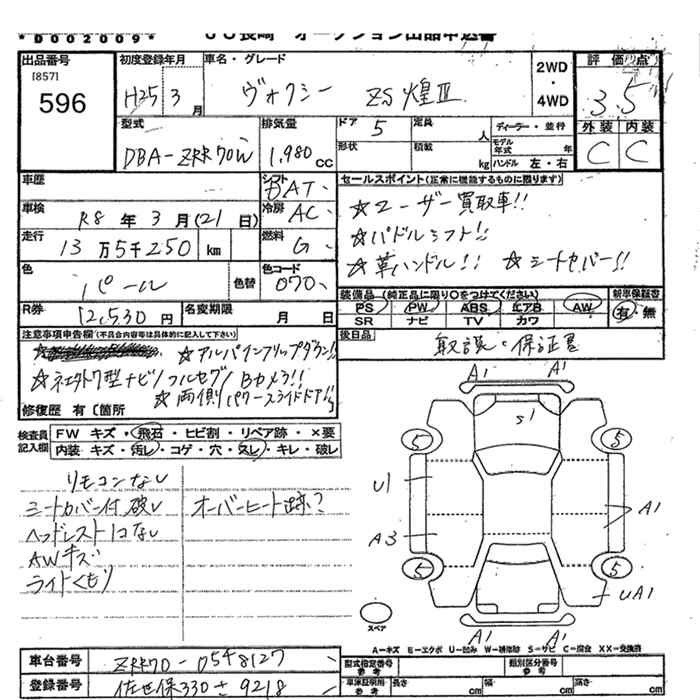 *D002009*
ＵＵ長崎 オークション出品申込書
出品番号
[857]
596
初度登録年月
H25 3月
車名・グレード
ヴォクシー ZS 煌Ⅲ
2WD
・
4WD
評価点
3.5
外装 内装
C C
型式
DBA-ZRR70W
排気量
1,980cc
ドア 5
定員 人
形状
積載 kg
ディーラー・並行
モデル年式 年
ハンドル 左・右
車歴
シフト AT
車検 R8年3月(21日)
冷房 AC
走行 13万5千250km
燃料 G
色 パール
色替
色コード 070
R券 12,530円
名変期限 月 日
セールスポイント(正常に機能するものに限ります)
☆ユーザー買取車!!
☆パドルシフト!!
☆革ハンドル!! ☆シートカバー!!
装備品(純正品に限り○をつけてください)
PS PW ABS エアB AW
SR ナビ TV カワ
新車保証書
有・無
後日品
取説・保証書
注意事項申告欄(不具合内容等は具体的に記入して下さい)
☆アルパインフリップダウン!!
☆ネオクトワ型ナビ/フルセグ/Bカメラ!!
☆両側パワースライドドア!!
修復歴 有〔箇所
検査員記入欄
FW キズ・飛石・ヒビ割・リペア跡・×要
内装・キズ・汚レ・コゲ・穴・スレ・キレ・破レ
リモコンなし
シートカバー付 破レ
オーバーヒート跡?
ヘッドレスト1コなし
AWキズ
ライトくもり
A1 A1
S1
5 5
U1
A1
A3
5 5
UA1
A1 A1
スペア
A−キズ E−エクボ U−凹み W−補修跡 S−サビ C−腐食 XX−交換済
車台番号 ZRR70-0548127
登録番号 佐世保330さ9218
型式指定番号
参考
類別区分番号
参考
車庫証明用
参考
長さ cm 幅 cm 高さ cm